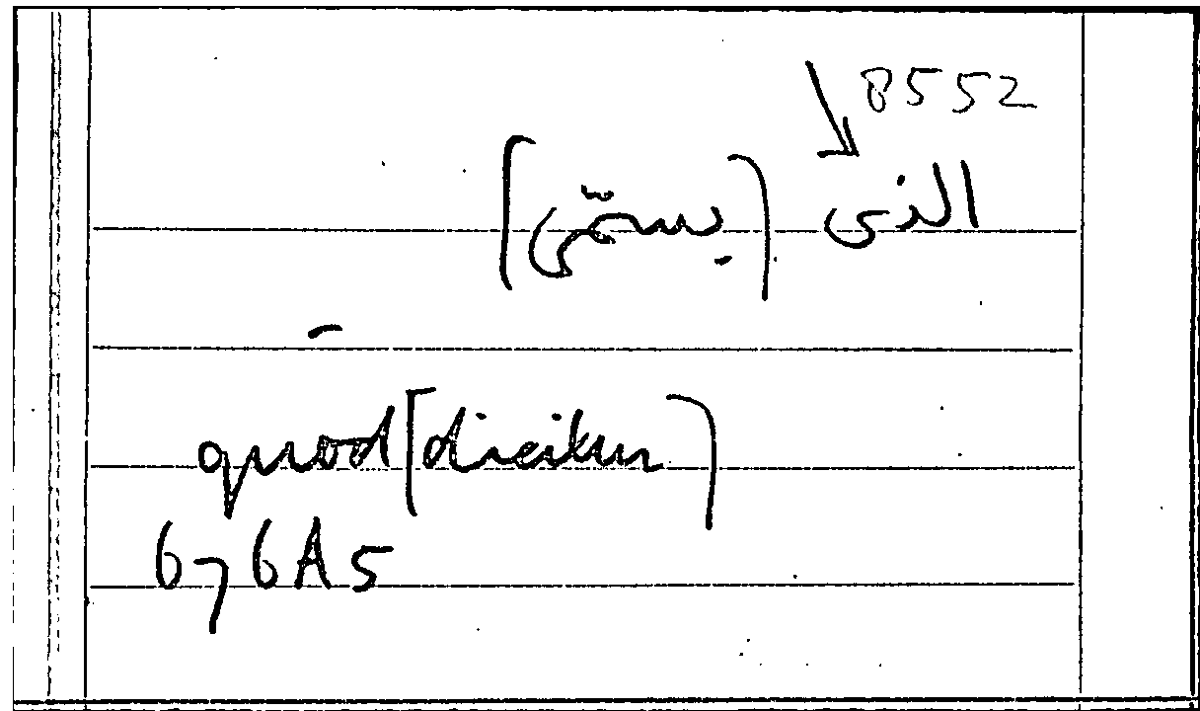 8552
الذى [يسمّى]
quod [dicitur]
676A5